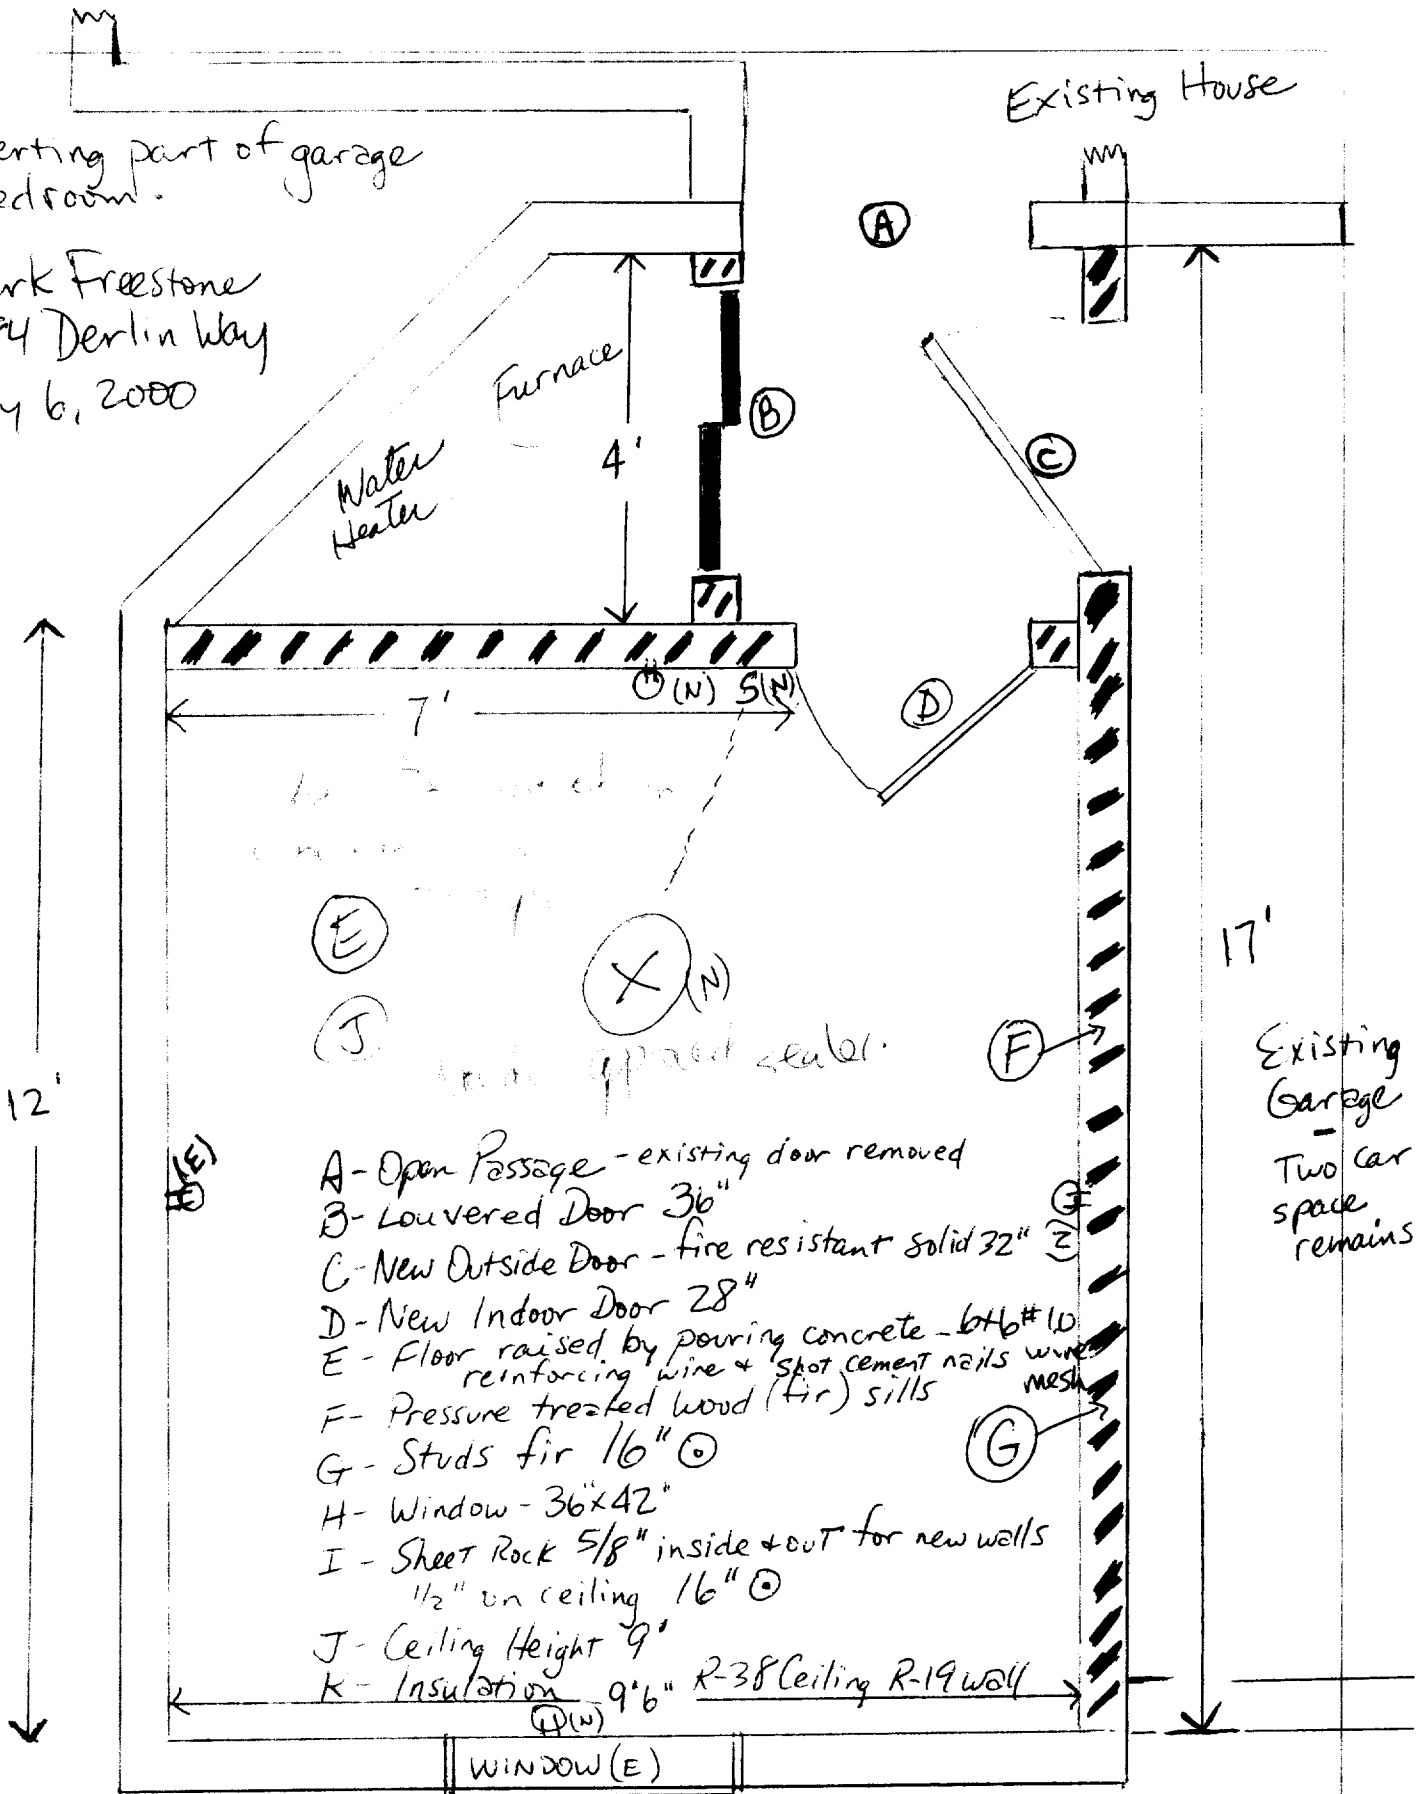 Existing House
erting part of garage
edroom.
A
rk Freestone
4 Derlin Way
y 6, 2000
Furnace
B
4'
C
Water
Heater
(N) S(N)
7'
D
E
X (N)
17'
J
F
sealer.
Existing
Garage
-
Two car
space
remains
12'
(E)
A- Open Passage - existing door removed
B- Louvered Door 36"
C- New Outside Door - fire resistant solid 32"
D- New Indoor Door 28"
E- Floor raised by pouring concrete - 6x6 #10
reinforcing wire + shot cement nails wire
mesh
F- Pressure treated wood (fir) sills
G- Studs fir 16" ⊙
G
H- Window - 36"x42"
I- Sheet Rock 5/8" inside + out for new walls
1/2" on ceiling 16" ⊙
J- Ceiling Height 9'
K- Insulation R-38 Ceiling R-19 wall
9'6"
(N)
WINDOW (E)